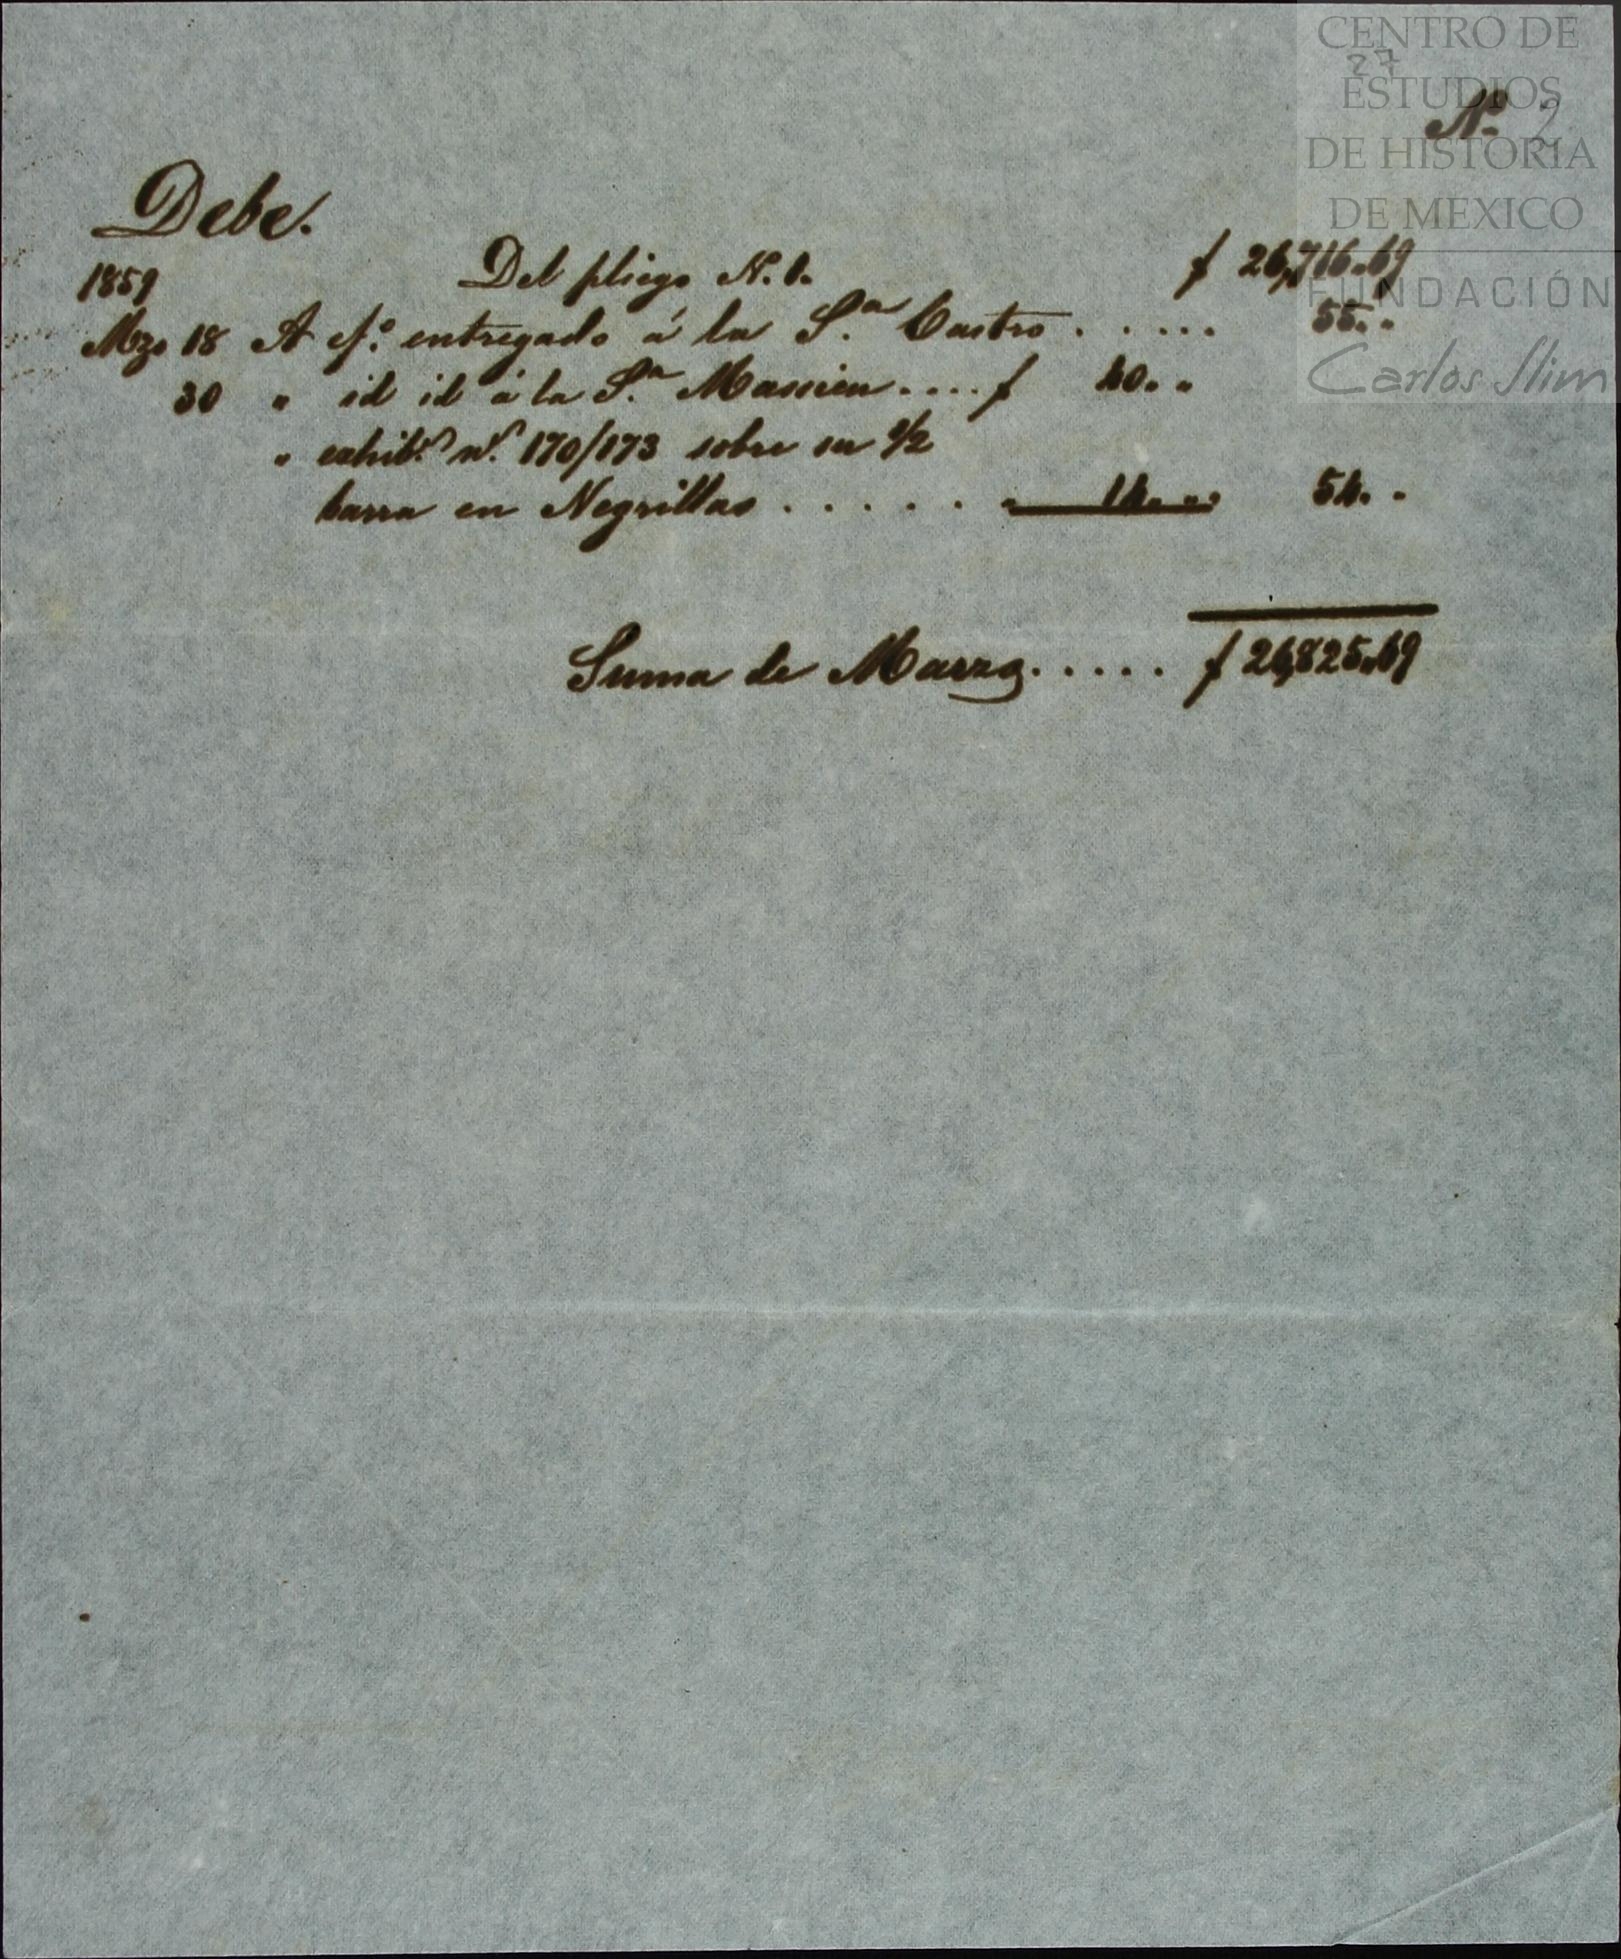 CENTRO DE
27
ESTUDIOS
Nº. 2
DE HISTORIA
DE MEXICO
FUNDACIÓN
Carlos Slim
Debe.
1859 Del pliego N. 1. $ 26,716.69
Mzo 18 A ef.º entregado á la S.ª Castro . . . . . 55. .
30 " id id á la S.ª Massieu . . . . $ 40. "
" exhib.s n.s 170/173 sobre su 1/2
barra en Negrillas . . . . . " 14. " 54. .
Suma de Marzo . . . . . $ 26,825.69